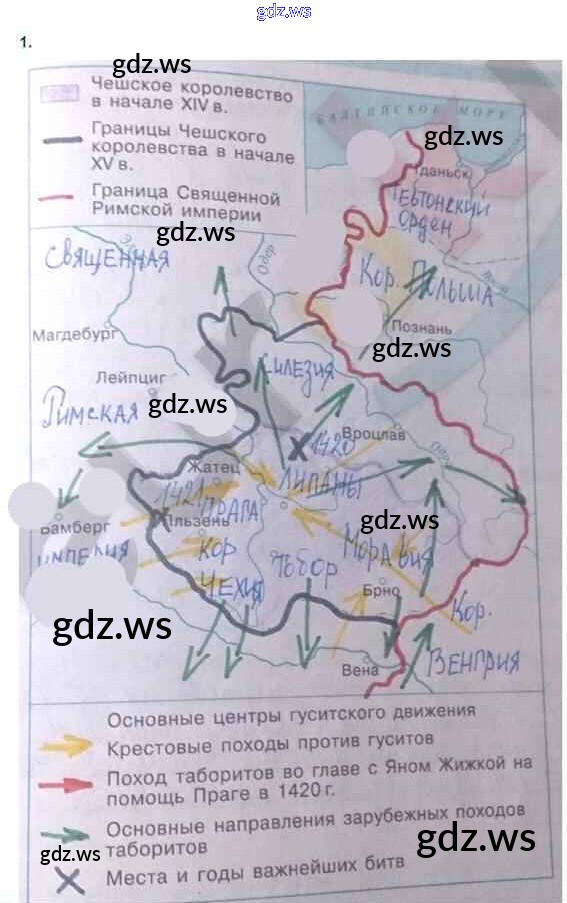 gdz.ws
1.
gdz.ws
Чешское королевство
в начале XIV в.
Границы Чешского
королевства в начале
XV в.
Граница Священной
Римской империи
gdz.ws
БАЛТИЙСКОЕ МОРЕ
gdz.ws
Гданьск
ТЕВТОНСКИЙ
ОРДЕН
СВЯЩЕННАЯ
Одер
Кор. Польша
Магдебург
Познань
gdz.ws
Лейпциг
СИЛЕЗИЯ
РИМСКАЯ
gdz.ws
1420
Вроцлав
Жатец
ЛИПАНЫ
1421
ПРАГА
gdz.ws
Бамберг
Пльзень
ИМПЕРИЯ
КОР
ЧЕХИЯ
Тобор
МОРАВИЯ
Брно
gdz.ws
Кор.
ВЕНГРИЯ
Вена
Основные центры гуситского движения
Крестовые походы против гуситов
Поход таборитов во главе с Яном Жижкой на
помощь Праге в 1420 г.
Основные направления зарубежных походов
таборитов
gdz.ws
gdz.ws
Места и годы важнейших битв